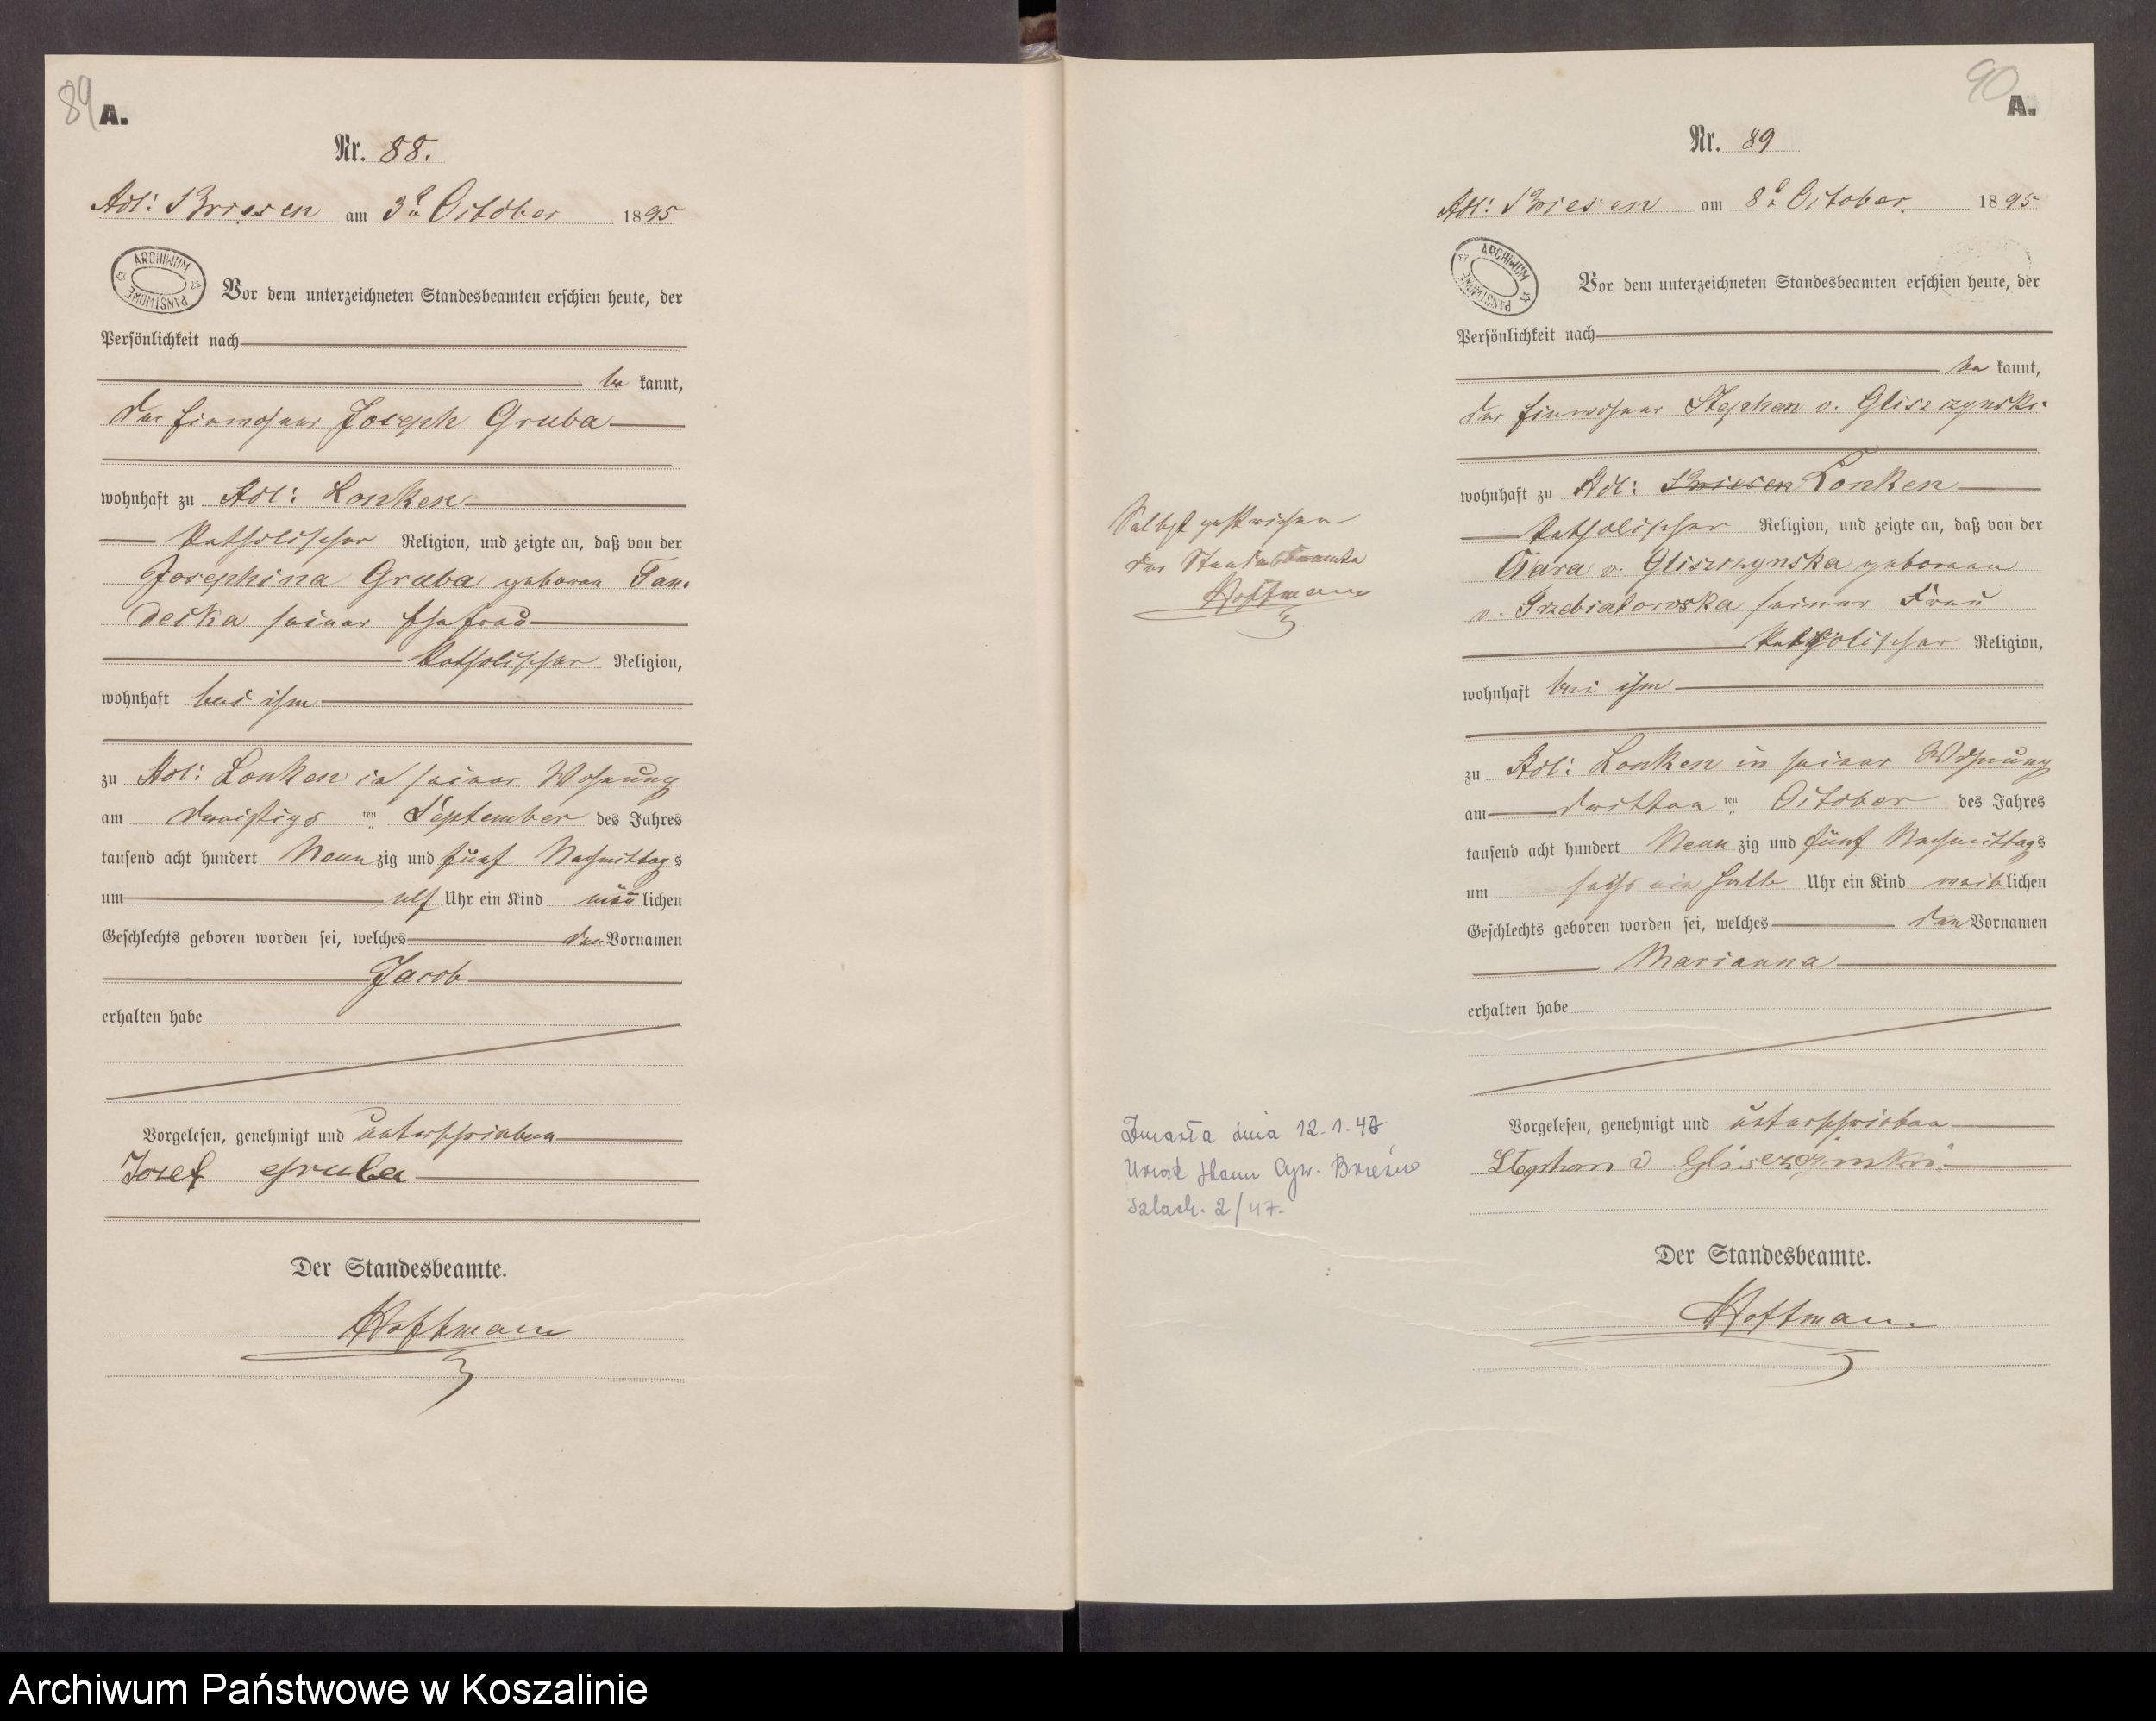 89
A.
Nr. 88.
Adl: Briesen am 3ten October 1895
ARCHIWUM PAŃSTWOWE
Vor dem unterzeichneten Standesbeamten erschien heute, der
Persönlichkeit nach
be kannt,
der Einwohner Joseph Gruba
wohnhaft zu Adl: Lonken
katholischer Religion, und zeigte an, daß von der
Josephina Gruba geboren
seiner Ehefrau
katholischer Religion,
wohnhaft bei ihm
zu Adl: Lonken in seiner Wohnung
am dreißigs ten September des Jahres
tausend acht hundert Neun zig und fünf Nachmittags
um elf Uhr ein Kind männlichen
Geschlechts geboren worden sei, welches den Vornamen
Jacob
erhalten habe
Vorgelesen, genehmigt und unterschrieben
Josef Gruba
Der Standesbeamte.
Hoffmann
Selbst gestrichen
der Standesbeamte
Hoffmann
Zmarła dnia 12.1.47
Urząd Stanu Cyw. Brzeźno
Szlach. 2/47.
90
A.
Nr. 89
Adl: Briesen am 8ten October 1895
ARCHIWUM PAŃSTWOWE
Vor dem unterzeichneten Standesbeamten erschien heute, der
Persönlichkeit nach
be kannt,
der Einwohner Stephan v. Gliszczynski
wohnhaft zu Adl: Briesen Lonken
katholischer Religion, und zeigte an, daß von der
Clara v. Gliszczynska geborenen
v. Trzebiatowska seiner Frau
katholischer Religion,
wohnhaft bei ihm
zu Adl: Lonken in seiner Wohnung
am dritten ten October des Jahres
tausend acht hundert Neun zig und fünf Nachmittags
um sechs ein halb Uhr ein Kind weiblichen
Geschlechts geboren worden sei, welches den Vornamen
Marianna
erhalten habe
Vorgelesen, genehmigt und unterschrieben
Stephan v Gliszczynski
Der Standesbeamte.
Hoffmann
Archiwum Państwowe w Koszalinie